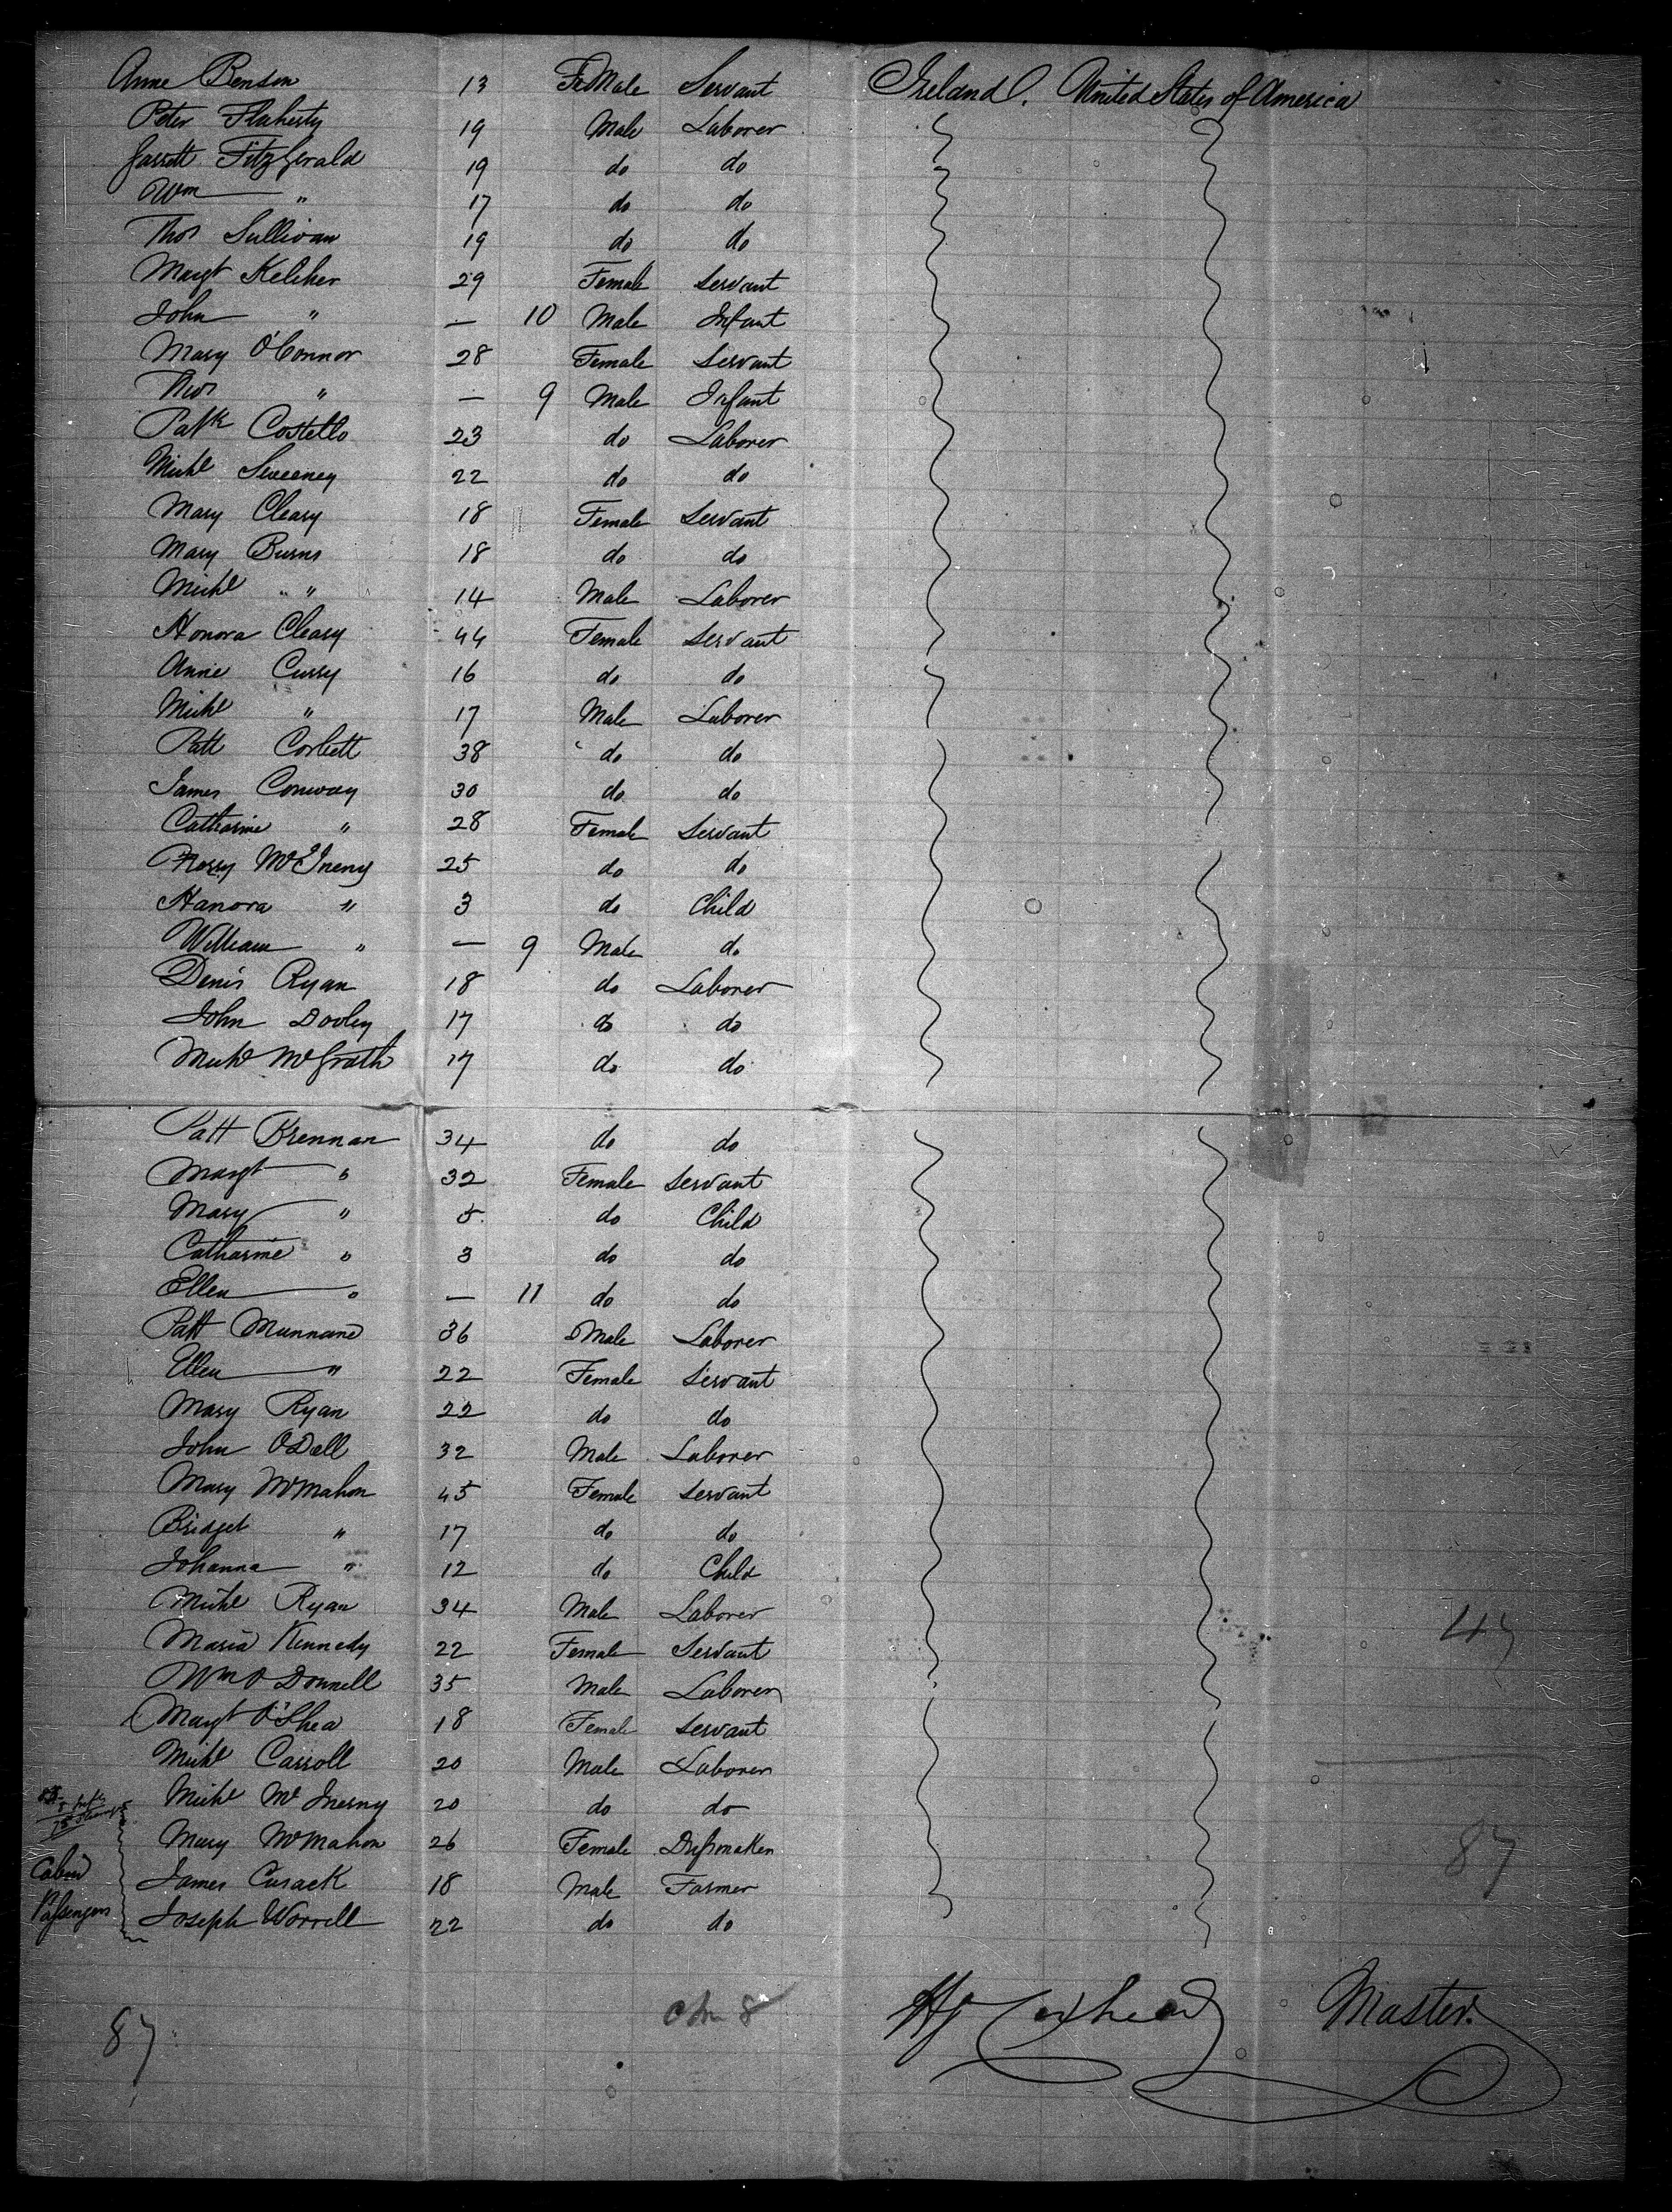 Anne Benson 13 FeMale Servant Ireland. United States of America
Peter Flaherty 19 Male Laborer
Garrett FitzGerald 19 do do
Wm " 17 do do
Thos Sullivan 19 do do
Margt Keliher 29 Female Servant
John " — 10 Male Infant
Mary O'Connor 28 Female Servant
Thos " — 9 Male Infant
Patk Costello 23 do Laborer
Michl Sweeney 22 do do
Mary Cleary 18 Female Servant
Mary Burns 18 do do
Michl " 14 Male Laborer
Honora Cleary 44 Female Servant
Anne Curry 16 do do
Michl " 17 Male Laborer
Patt Corbett 38 do do
James Conway 30 do do
Catharine " 28 Female Servant
McInerny 25 do do
Hanora " 3 do Child
William " — 9 Male do
Denis Ryan 18 do Laborer
John Dooley 17 do do
Michl McGrath 17 do do
Patt Brennan 34 do do
Margt " 32 Female Servant
Mary " 5 do Child
Catharine " 3 do do
Ellen " — 11 do do
Patt Munnane 36 Male Laborer
Ellen " 22 Female Servant
Mary Ryan 22 do do
John ODell 32 Male Laborer
Mary McMahon 45 Female Servant
Bridget " 17 do do
Johanna " 12 do Child
Michl Ryan 34 Male Laborer
Maria Kennedy 22 Female Servant
Wm O Donnell 35 Male Laborer
Margt O'Shea 18 Female Servant
Michl Carroll 20 Male Laborer
Michl McInerny 20 do do
Mary McMahon 26 Female Dressmaker
Cabin James Cusack 18 Male Farmer
Passengers Joseph Worrell 22 do do
47
87
Master.
87